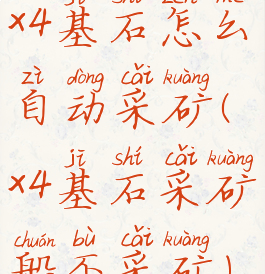 ×4基石怎么
zì dòng cǎi kuàng
自动采矿(
jī shí cǎi kuàng
×4基石采矿
chuán bù cǎi kuàng
船不采矿)